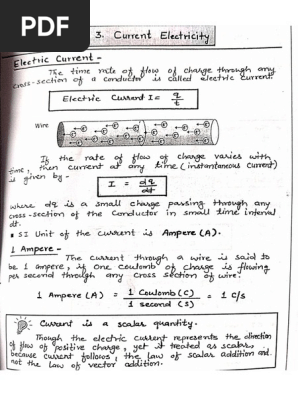 PDF
3. Current Electricity
Electric Current -
The time rate of flow of charge through any
cross-section of a conductor is called electric current.
Electric Current I = q/t
Wire
If the rate of flow of charge varies with
time, then current at any time (instantaneous current)
is given by -
I = dq/dt
where dq is a small charge passing through any
cross-section of the Conductor in small time interval
dt.
• SI Unit of the current is Ampere (A).
1 Ampere -
The current through a wire is said to
be 1 ampere, if one coulomb of charge is flowing
per second through any cross section of wire.
1 Ampere (A) = 1 Coulomb (C) / 1 second (S) = 1 C/s
Current is a scalar quantity.
Though the electric current represents the direction
of flow of positive charge, yet it treated as scalar,
because current follows, the law of scalar addition and
not the law of vector addition.